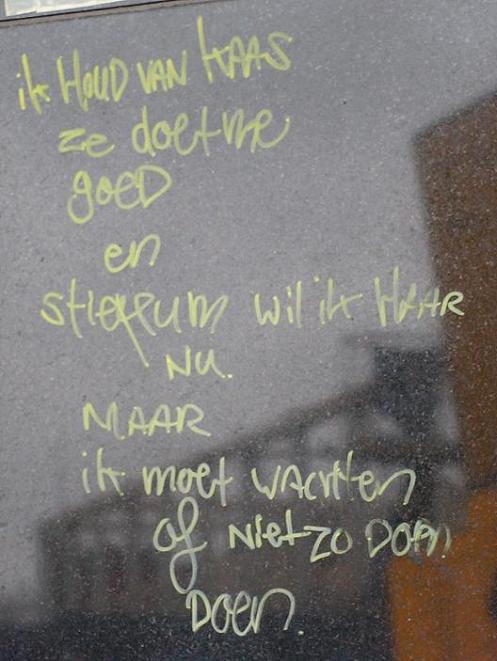 ik HOUD VAN KAAS
ze doet me
goED
en
stiekum wil ik HAAR
NU.
MAAR
ik moet wachten
of Niet zo DOEN
DOEN.